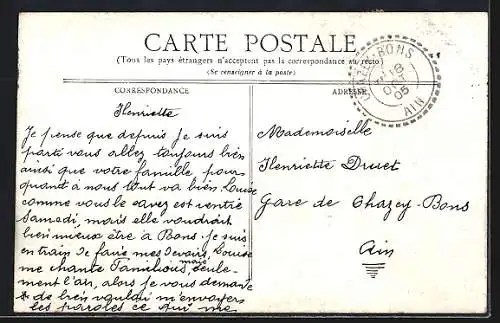 CARTE POSTALE
(Tous les pays étrangers n'acceptent pas la correspondance au recto)
(Se renseigner à la poste)
CORRESPONDANCE
Henriette
Je pense que depuis je suis
parti vous allez toujours bien
ainsi que votre famille pour
quant à nous tout va bien. Louise
comme vous le savez est rentré
Samedi, mais elle voudrait
bien mieux être à Bons je suis
en train de faire mes devoirs, Louise
me chante mais seule-
ment l'air, alors je vous demande
de bien vouloir m'envoyers
les paroles ce qui me
ADRESSE
CHAZEY-BONS
18
OCT
05
AIN
Mademoiselle
Henriette Druet
Gare de Chazey-Bons
Ain